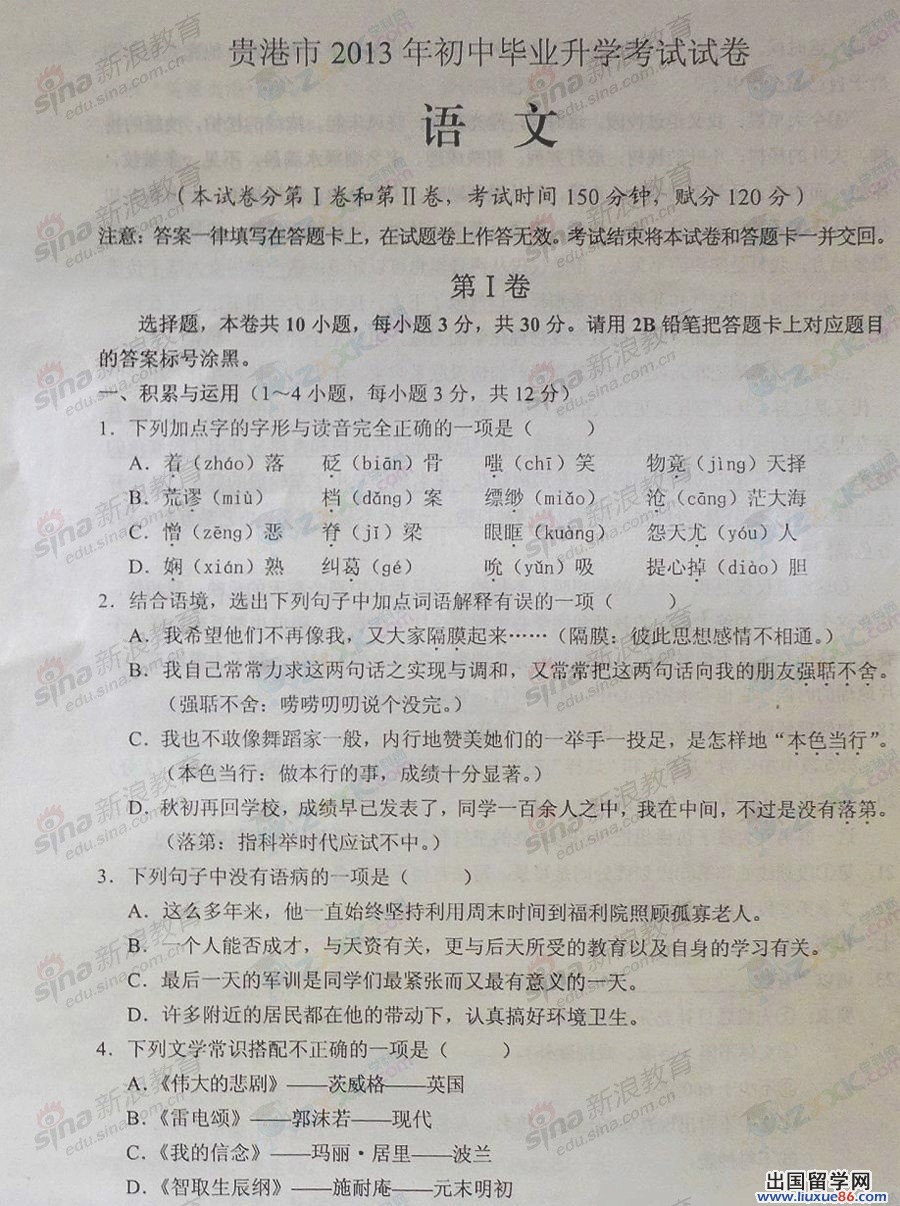 贵港市 2013 年初中毕业升学考试试卷
语 文
（本试卷分第Ⅰ卷和第Ⅱ卷，考试时间 150 分钟，赋分 120 分）
注意：答案一律填写在答题卡上，在试题卷上作答无效。考试结束将本试卷和答题卡一并交回。
第Ⅰ卷
选择题，本卷共 10 小题，每小题 3 分，共 30 分。请用 2B 铅笔把答题卡上对应题目
的答案标号涂黑。
一、积累与运用（1～4 小题，每小题 3 分，共 12 分）
1．下列加点字的字形与读音完全正确的一项是（　　）
A．着（zháo）落　砭（biān）骨　嗤（chī）笑　物竟（jìng）天择
B．荒谬（miù）　档（dǎng）案　缥缈（miǎo）　沧（cāng）茫大海
C．憎（zēng）恶　脊（jǐ）梁　眼眶（kuàng）　怨天尤（yóu）人
D．娴（xián）熟　纠葛（gé）　吮（yǔn）吸　提心掉（diào）胆
2．结合语境，选出下列句子中加点词语解释有误的一项（　　）
A．我希望他们不再像我，又大家隔膜起来……（隔膜：彼此思想感情不相通。）
B．我自己常常力求这两句话之实现与调和，又常常把这两句话向我的朋友强聒不舍。
（强聒不舍：唠唠叨叨说个没完。）
C．我也不敢像舞蹈家一般，内行地赞美她们的一举手一投足，是怎样地“本色当行”。
（本色当行：做本行的事，成绩十分显著。）
D．秋初再回学校，成绩早已发表了，同学一百余人之中，我在中间，不过是没有落第。
（落第：指科举时代应试不中。）
3．下列句子中没有语病的一项是（　　）
A．这么多年来，他一直始终坚持利用周末时间到福利院照顾孤寡老人。
B．一个人能否成才，与天资有关，更与后天所受的教育以及自身的学习有关。
C．最后一天的军训是同学们最紧张而又最有意义的一天。
D．许多附近的居民都在他的带动下，认真搞好环境卫生。
4．下列文学常识搭配不正确的一项是（　　）
A．《伟大的悲剧》——茨威格——英国
B．《雷电颂》——郭沫若——现代
C．《我的信念》——玛丽·居里——波兰
D．《智取生辰纲》——施耐庵——元末明初
sina 新浪教育
edu.sina.com.cn
出国留学网
www.liuxue86.com